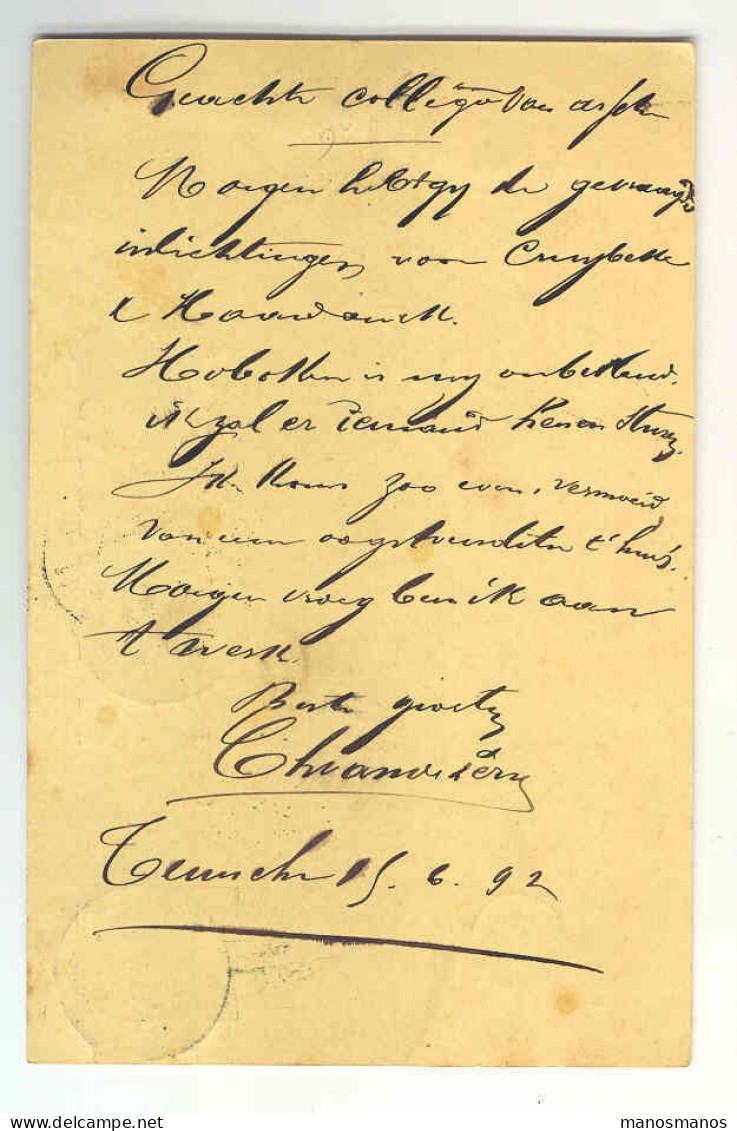 Geachte collega Van
Morgen hebt gy de gevraagde
inlichtingen voor Cruybeke
& 
Hoboken is my onbekend.
ik zal er iemand henen sturen.
Ik kom zoo even, vermoeid
van een t'huis.
Morgen vroeg ben ik aan
't werk.
Beste groeten
15. 6. 92
manosmanos